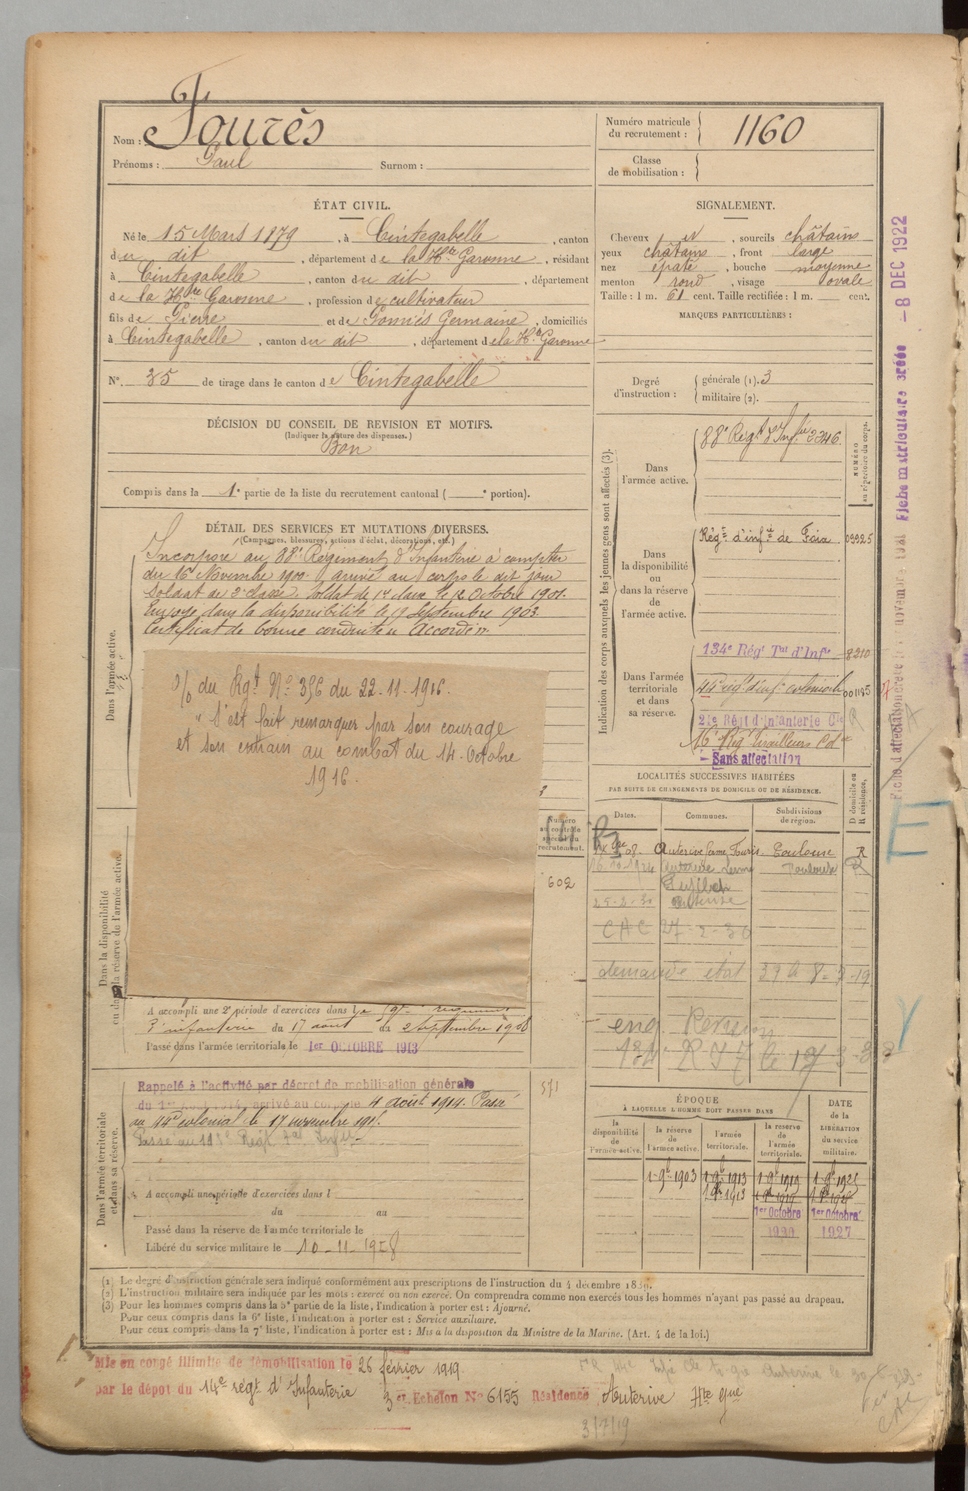 Nom : Fourès
Prénoms : Paul Surnom :
Numéro matricule du recrutement : 1160
Classe de mobilisation :
ÉTAT CIVIL.
Né le 15 Mars 1879, à Cintegabelle, canton
du dit, département de la Hte Garonne, résidant
à Cintegabelle, canton du dit, département
de la Hte Garonne, profession de cultivateur
fils de Pierre et de Gomiés Germaine, domiciliés
à Cintegabelle, canton du dit, département de la Hte Garonne
No. 35 de tirage dans le canton de Cintegabelle
SIGNALEMENT.
Cheveux et, sourcils châtains
yeux châtains, front large
nez épaté, bouche moyenne
menton rond, visage ovale
Taille : 1 m. 61 cent. Taille rectifiée : 1 m. cent.
MARQUES PARTICULIÈRES :
Degré d'instruction : générale (1). 3
militaire (2).
DÉCISION DU CONSEIL DE REVISION ET MOTIFS.
(Indiquer la nature des dispenses.)
Bon
Compris dans la 1e partie de la liste du recrutement cantonal ( e portion).
DÉTAIL DES SERVICES ET MUTATIONS DIVERSES.
(Campagnes, blessures, actions d'éclat, décorations, etc.)
Dans l'armée active.
Incorporé au 88e Régiment d'Infanterie à compter
du 16 Novembre 1900. arrivé au corps le dit jour
Soldat de 2e classe. Soldat de 1e classe le 12 Octobre 1901.
Envoyé dans la disponibilité le 19 Septembre 1903
Certificat de bonne conduite "Accordé".
O/ du Rgt No 356 du 22.11.1916.
" S'est fait remarquer par son courage
et son entrain au combat du 14. Octobre
1916.
Dans la disponibilité ou dans la réserve de l'armée active.
A accompli une 2e période d'exercices dans le
d'infanterie du 17 août au 2 Septembre 1908
Passé dans l'armée territoriale le 1er OCTOBRE 1913
Numéro au contrôle spécial du recrutement.
602
571
Dans l'armée territoriale et dans sa réserve.
Rappelé à l'activité par décret de mobilisation générale
du 1er août 1914, arrivé au corps le 4 août 1914. Passé
au 44e colonial le 17 novembre 1915.
A accompli une période d'exercices dans l
du au
Passé dans la réserve de l'armée territoriale le
Libéré du service militaire le 10-11-1928
Indication des corps auxquels les jeunes gens sont affectés (3).
NUMÉRO au répertoire du corps.
Dans l'armée active. 88e Regt d'Infie 2346
Dans la disponibilité ou dans la réserve de l'armée active. Régt d'infie de Foix 09925
Dans l'armée territoriale et dans sa réserve.
134e Régt Tal d'Infie 8210
44e régt d'infie coloniale 001183
21e Régt d'Infanterie Cle
16e Régt Tirailleurs Col
Sans affectation
LOCALITÉS SUCCESSIVES HABITÉES
PAR SUITE DE CHANGEMENTS DE DOMICILE OU DE RÉSIDENCE.
Dates. Communes. Subdivisions de région. D domicile ou R résidence.
08. Auterive Toulouse R
1924 Auterive Toulouse R
25-2-30
CAC 27-2-30
demande état
ÉPOQUE
À LAQUELLE L'HOMME DOIT PASSER DANS
la disponibilité de l'armée active.
la réserve de l'armée active.
l'armée territoriale.
la réserve de l'armée territoriale.
DATE de la LIBÉRATION du service militaire.
1-9b 1903 1-9b 1913 1-9b 1919 1-9b 1925
1er Octobre 1920 1er Octobre 1927
(1) Le degré d'instruction générale sera indiqué conformément aux prescriptions de l'instruction du 4 décembre 1889.
(2) L'instruction militaire sera indiquée par les mots : exercé ou non exercé. On comprendra comme non exercés tous les hommes n'ayant pas passé au drapeau.
(3) Pour les hommes compris dans la 5e partie de la liste, l'indication à porter est : Ajourné.
Pour ceux compris dans la 6e liste, l'indication à porter est : Service auxiliaire.
Pour ceux compris dans la 7e liste, l'indication à porter est : Mis à la disposition du Ministre de la Marine. (Art. 4 de la loi.)
Mis en congé illimité de démobilisation le 26 février 1919.
par le dépot du 14e régt d'Infanterie 3er Echelon No 6155 Résidence Auterive Hte Gne
3/7/19
- 8 DEC 1922
Fiche matriculaire créée